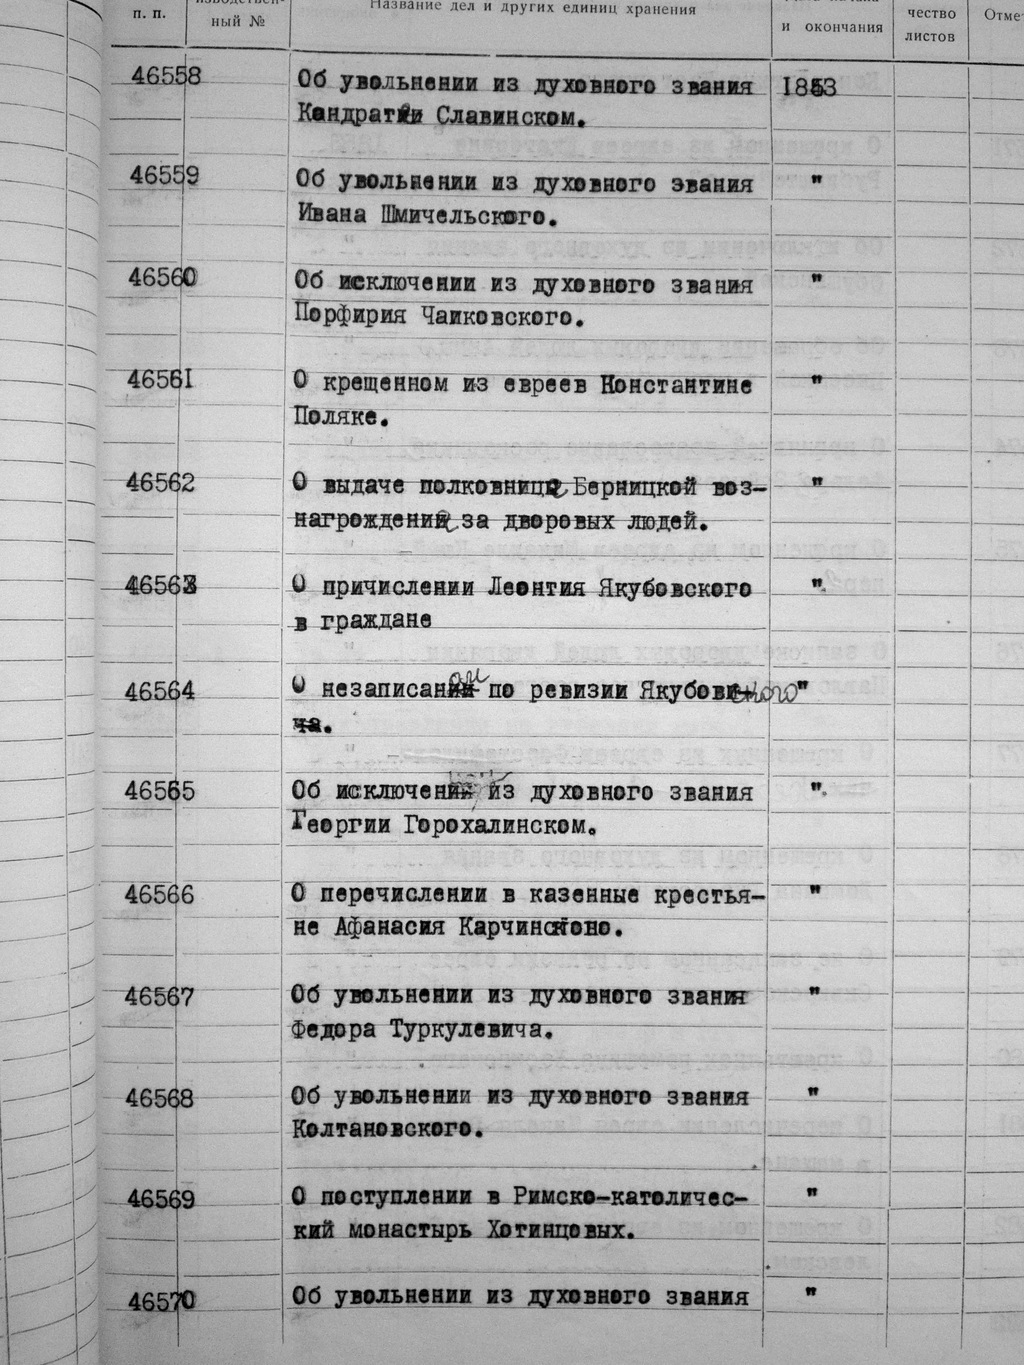 п. п.
ный №
Название дел и других единиц хранения
и окончания
чество
листов
46558 Об увольнении из духовного звания 1853
Кондратии Славинском.
46559 Об увольнении из духовного звания "
Ивана Шмичельского.
46560 Об исключении из духовного звания "
Порфирия Чаиковского.
46561 О крещенном из евреев Константине "
Поляке.
46562 О выдаче полковнице Берницкой воз- "
награждения за дворовых людей.
46563 О причислении Леонтия Якубовского "
в граждане
46564 О незаписании по ревизии Якубовского "
ча.
46565 Об исключении из духовного звания "
Георгии Горохалинском.
46566 О перечислении в казенные крестья- "
не Афанасия Карчинского.
46567 Об увольнении из духовного звания "
Федора Туркулевича.
46568 Об увольнении из духовного звания "
Колтановского.
46569 О поступлении в Римско-католичес- "
кий монастырь Хотинцовых.
46570 Об увольнении из духовного звания "